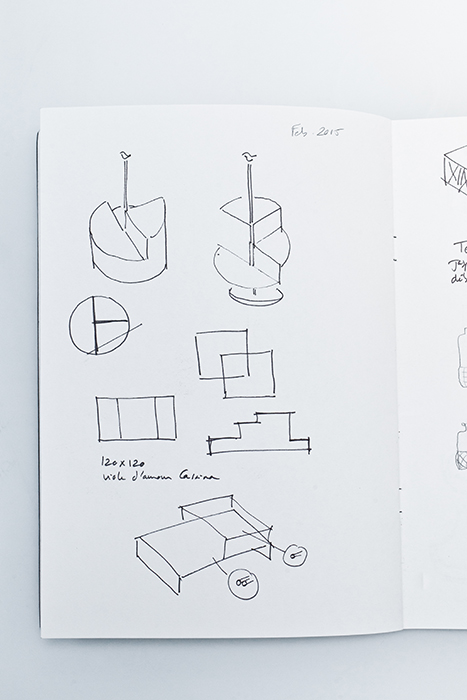 Feb. 2015
120x120
viole d'amour Cassina